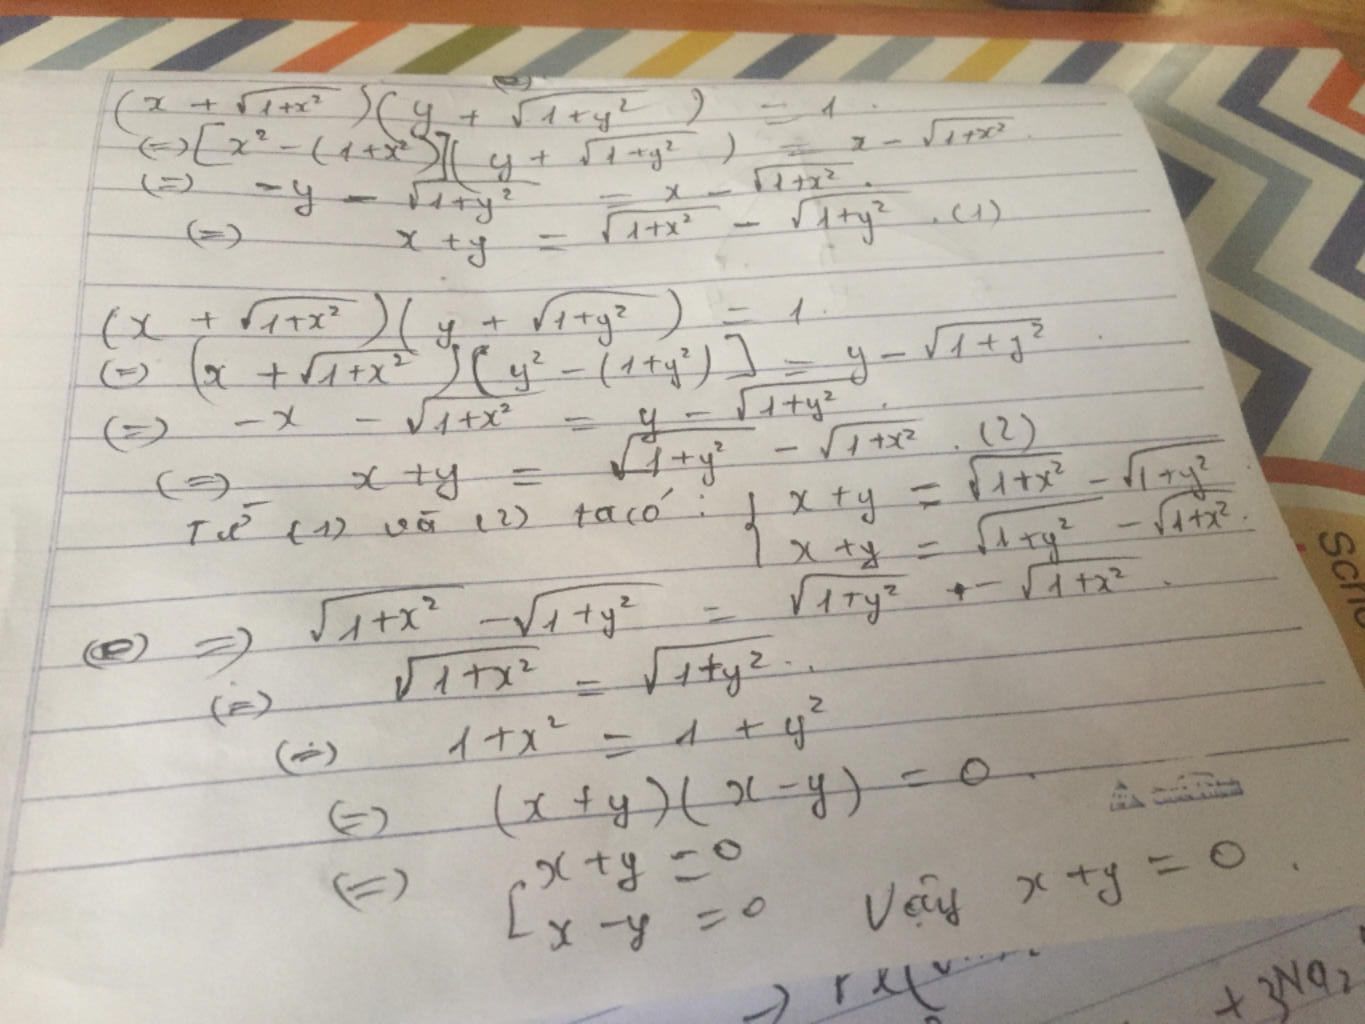 (x + √(1+x²))(y + √(1+y²)) = 1.
(=) [x² - (1+x²)](y + √(1+y²)) = x - √(1+x²).
(=) -y - √(1+y²) = x - √(1+x²).
(=) x + y = √(1+x²) - √(1+y²). (1)
(x + √(1+x²))(y + √(1+y²)) = 1.
(=) (x + √(1+x²))[y² - (1+y²)] = y - √(1+y²).
(=) -x - √(1+x²) = y - √(1+y²).
(=) x + y = √(1+y²) - √(1+x²). (2)
Từ (1) và (2) ta có: { x + y = √(1+x²) - √(1+y²)
x + y = √(1+y²) - √(1+x²).
=) √(1+x²) - √(1+y²) = √(1+y²) - √(1+x²).
(=) √(1+x²) = √(1+y²).
(=) 1 + x² = 1 + y²
(=) (x + y)(x - y) = 0.
(=) [ x + y = 0
x - y = 0 Vậy x + y = 0.
Scho